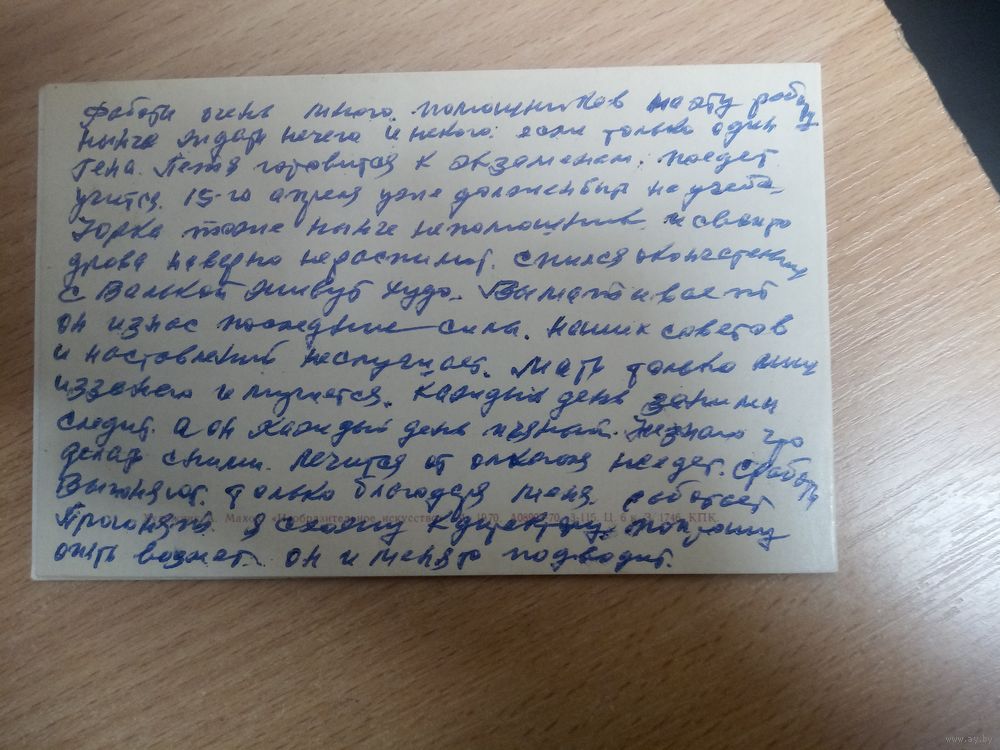 Работи очень много. помощников на эту работу
нынче ждать нечего и некого. если только один
Гена. Петя готовится к экзаменам. поедет
учится. 15-го апреля уже должен быть на учебе.
Юрка тоже нынче непомощник. и свои то
дрова наверно нераспилит. спился окончательно
с Валькой живут худо. Выматывает
он из нас последние силы. наших советов
и наставлений неслушает. Мать только
из занего и мучается. каждый день заними
следит. а он каждый день пьяный. Незнаю что
делать сними. лечится от алкоголя неедет. с работы
Выгоняют. только благодаря меня работает
Прогонят. я схожу к директору попрошу
опять возмет. он и меня то подводит.
Махов «Изобразительное искусство» 1970. Ц. 6 к. З. 1746. КПК
www.ay.by